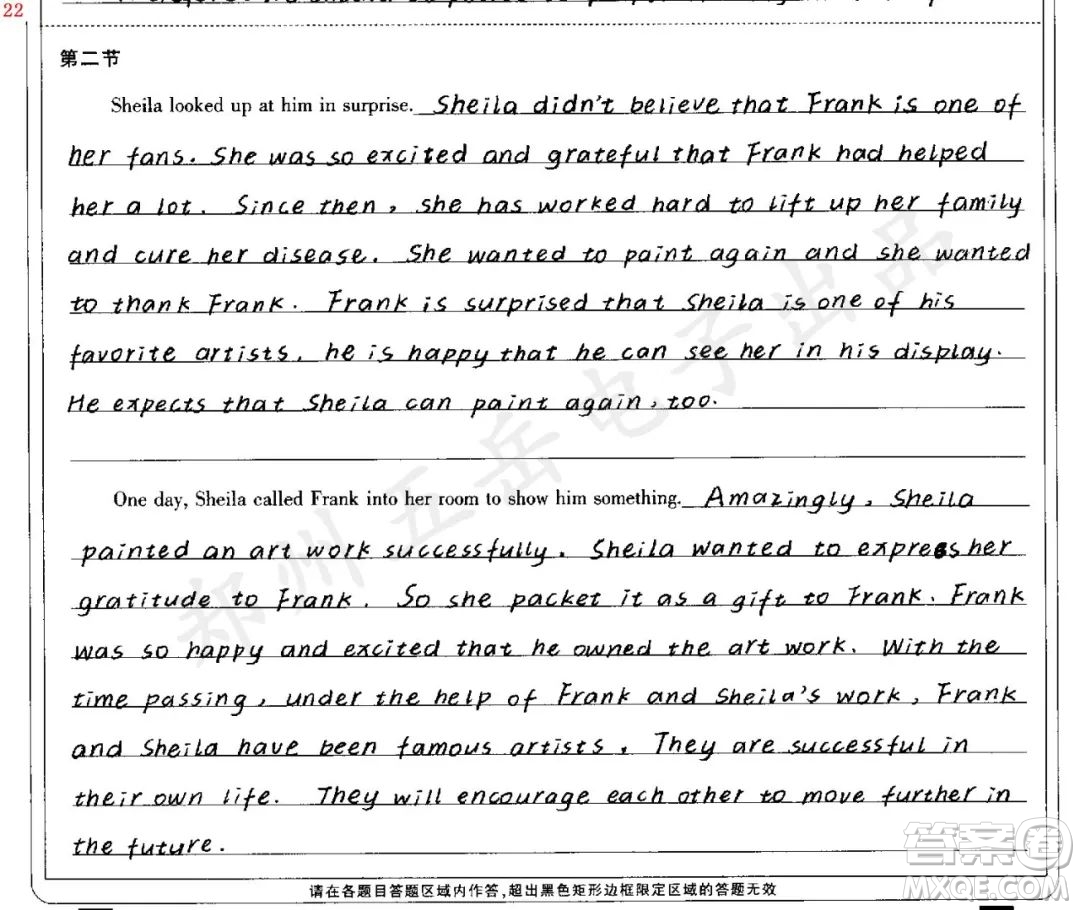 22
第二节
Sheila looked up at him in surprise. Sheila didn't believe that Frank is one of
her fans. She was so excited and grateful that Frank had helped
her a lot. Since then, she has worked hard to lift up her family
and cure her disease. She wanted to paint again and she wanted
to thank Frank. Frank is surprised that Sheila is one of his
favorite artists, he is happy that he can see her in his display.
He expects that Sheila can paint again, too.
One day, Sheila called Frank into her room to show him something. Amazingly, Sheila
painted an art work successfully. Sheila wanted to express her
gratitude to Frank. So she packet it as a gift to Frank. Frank
was so happy and excited that he owned the art work. With the
time passing, under the help of Frank and Sheila's work, Frank
and Sheila have been famous artists. They are successful in
their own life. They will encourage each other to move further in
the future.
请在各题目答题区域内作答,超出黑色矩形边框限定区域的答题无效
郑州五岳电子出品
答案圈
MXQE.COM